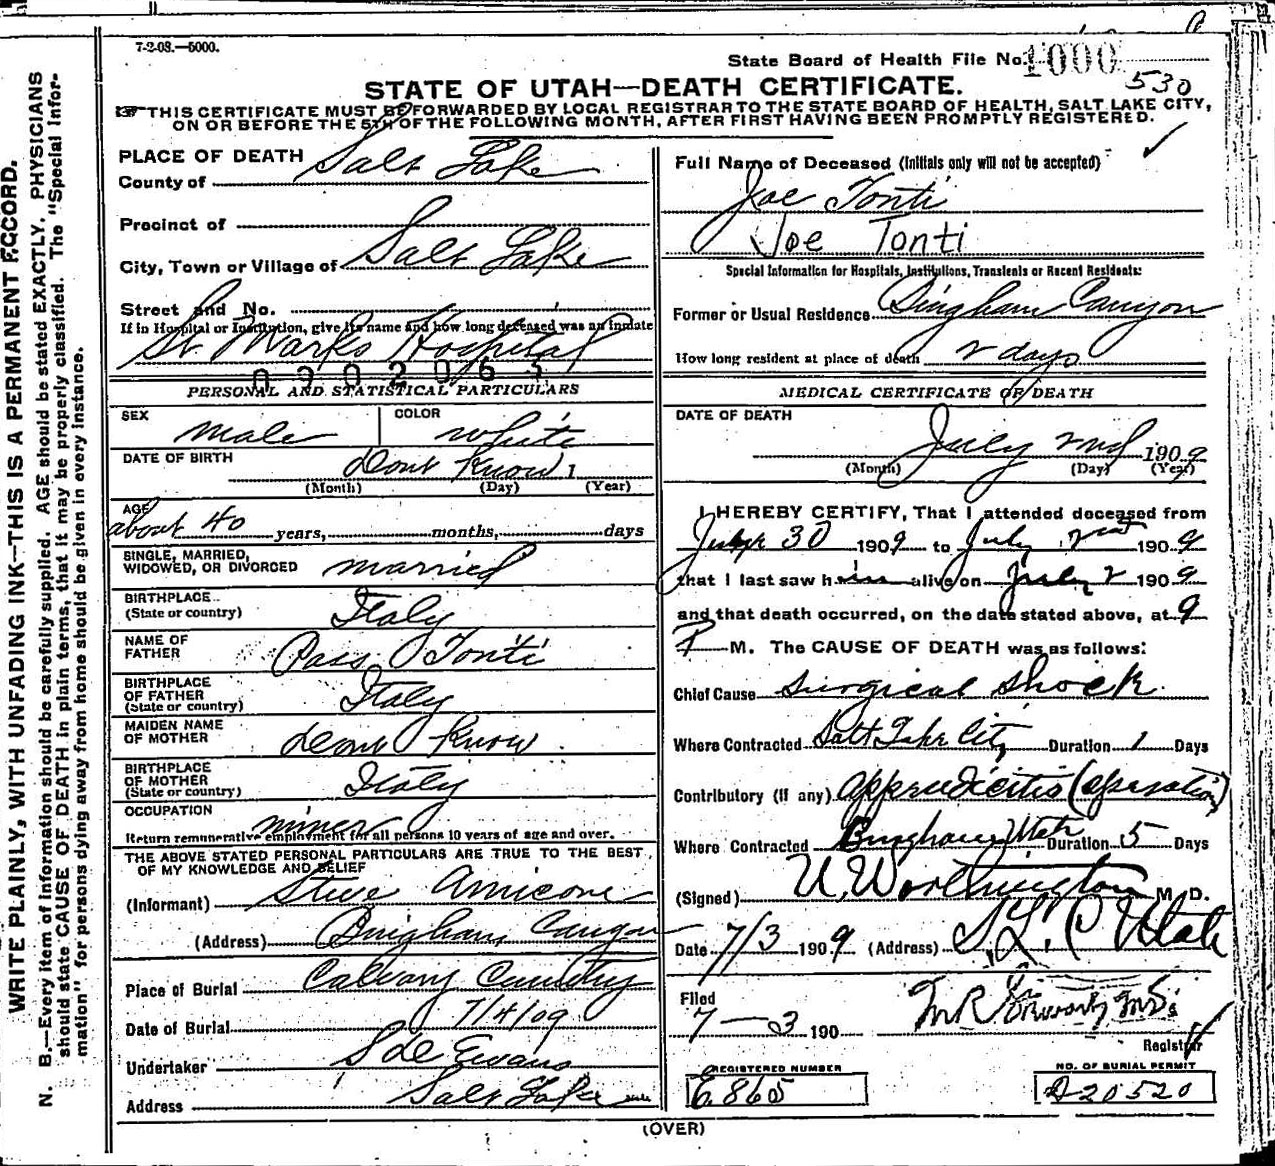 7-2-08.—5000.
State Board of Health File No. 1000
530
STATE OF UTAH—DEATH CERTIFICATE.
THIS CERTIFICATE MUST BE FORWARDED BY LOCAL REGISTRAR TO THE STATE BOARD OF HEALTH, SALT LAKE CITY,
ON OR BEFORE THE 5TH OF THE FOLLOWING MONTH, AFTER FIRST HAVING BEEN PROMPTLY REGISTERED.
WRITE PLAINLY, WITH UNFADING INK—THIS IS A PERMANENT RECORD.
N. B.—Every item of information should be carefully supplied. AGE should be stated EXACTLY. PHYSICIANS
should state CAUSE OF DEATH in plain terms, that it may be properly classified. The "Special Infor-
mation" for persons dying away from home should be given in every instance.
PLACE OF DEATH
County of Salt Lake
Precinct of
City, Town or Village of Salt Lake
Street and No.
If in Hospital or Institution, give its name and how long deceased was an inmate
St. Marks Hospital
0902063
PERSONAL AND STATISTICAL PARTICULARS
SEX male COLOR white
DATE OF BIRTH dont know 1
(Month) (Day) (Year)
AGE about 40 years, months, days
SINGLE, MARRIED,
WIDOWED, OR DIVORCED married
BIRTHPLACE
(State or country) Italy
NAME OF
FATHER Pass Tonti
BIRTHPLACE
OF FATHER
(State or country) Italy
MAIDEN NAME
OF MOTHER dont know
BIRTHPLACE
OF MOTHER
(State or country) Italy
OCCUPATION miner
Return remunerative employment for all persons 10 years of age and over.
THE ABOVE STATED PERSONAL PARTICULARS ARE TRUE TO THE BEST
OF MY KNOWLEDGE AND BELIEF
(Informant) Steve Amicone
(Address) Bingham Canyon
Place of Burial Calvary Cemetery
Date of Burial 7/4/09
Undertaker S de Evans
Address Salt Lake
Full Name of Deceased (Initials only will not be accepted)
Joe Tonti
Joe Tonti
Special Information for Hospitals, Institutions, Transients or Recent Residents:
Former or Usual Residence Bingham Canyon
How long resident at place of death 2 days
MEDICAL CERTIFICATE OF DEATH
DATE OF DEATH July 2nd 1909
(Month) (Day) (Year)
I HEREBY CERTIFY, That I attended deceased from
30 1909 to July 2nd 1909
that I last saw him alive on July 2 1909
and that death occurred, on the date stated above, at 9
P M. The CAUSE OF DEATH was as follows:
Chief Cause Surgical Shock
Where Contracted Salt Lake City Duration 1 Days
Contributory (if any) Appendicitis (operation)
Where Contracted Bingham Utah Duration 5 Days
(Signed) U. Worthington M. D.
Date 7/3 1909 (Address) S. L. C Utah
Filed
7—3 190
Registrar
REGISTERED NUMBER
E865
NO. OF BURIAL PERMIT
A20520
(OVER)